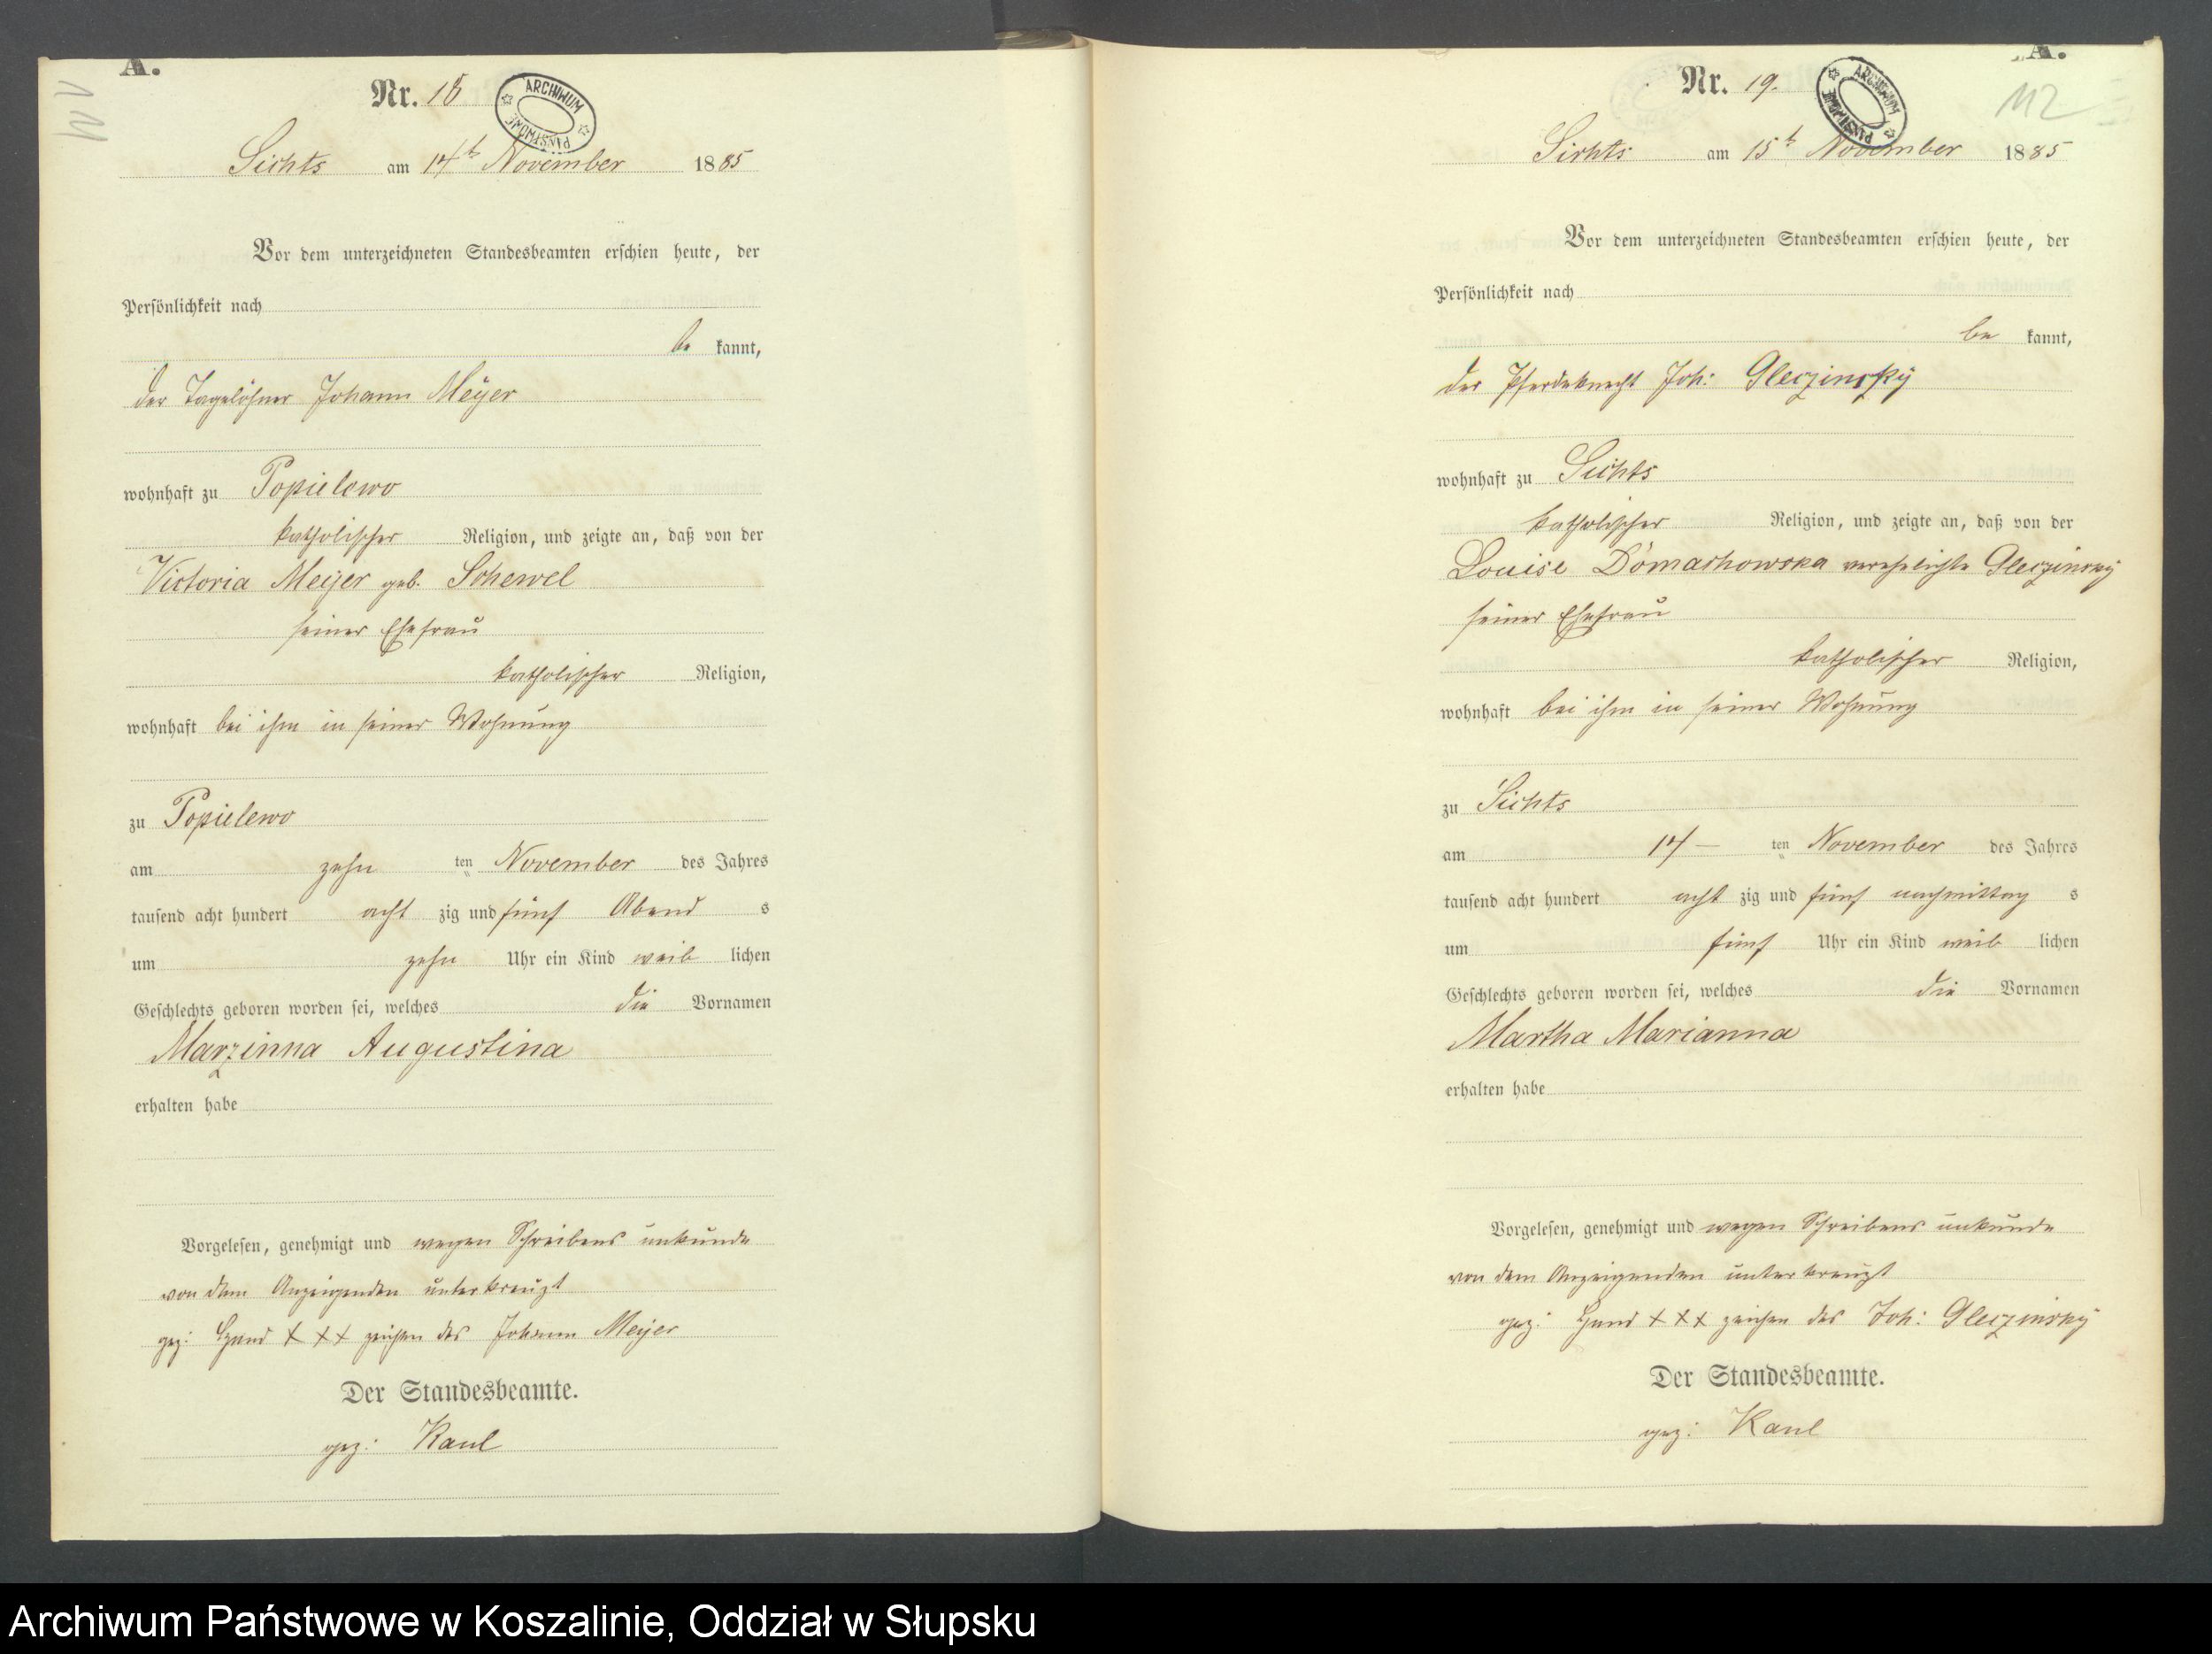 A.
111
Nr. 18
ARCHIWUM PAŃSTWOWE
Sichts am 14t November 1885
Vor dem unterzeichneten Standesbeamten erschien heute, der
Persönlichkeit nach
be kannt,
der Tagelöhner Johann Meÿer
wohnhaft zu Popielewo
katholischer Religion, und zeigte an, daß von der
Victoria Meÿer geb. Schewel
seiner Ehefrau
katholischer Religion,
wohnhaft bei ihm in seiner Wohnung
zu Popielewo
am zehn ten November des Jahres
tausend acht hundert acht zig und fünf Abend s
um zehn Uhr ein Kind weib lichen
Geschlechts geboren worden sei, welches die Vornamen
Marzinna Augustina
erhalten habe
Vorgelesen, genehmigt und wegen Schreibens unkunde
von dem Anzeigenden unterkreuzt
gez: Hand XXX zeichen des Johann Meÿer
Der Standesbeamte.
gez: Kaul
A.
112
Nr. 19.
ARCHIWUM PAŃSTWOWE
Sichts am 15t November 1885
Vor dem unterzeichneten Standesbeamten erschien heute, der
Persönlichkeit nach
be kannt,
der Pferdeknecht Joh: Gleczinskÿ
wohnhaft zu Sichts
katholischer Religion, und zeigte an, daß von der
Louise Domachowska verehelichte Gleczinsky
seiner Ehefrau
katholischer Religion,
wohnhaft bei ihm in seiner Wohnung
zu Sichts
am 14 – ten November des Jahres
tausend acht hundert acht zig und fünf nachmittag s
um fünf Uhr ein Kind weib lichen
Geschlechts geboren worden sei, welches die Vornamen
Martha Marianna
erhalten habe
Vorgelesen, genehmigt und wegen Schreibens unkunde
von dem Anzeigenden unterkreuzt
gez: Hand XXX zeichen des Joh: Gleczinsky
Der Standesbeamte.
gez: Kaul
Archiwum Państwowe w Koszalinie, Oddział w Słupsku